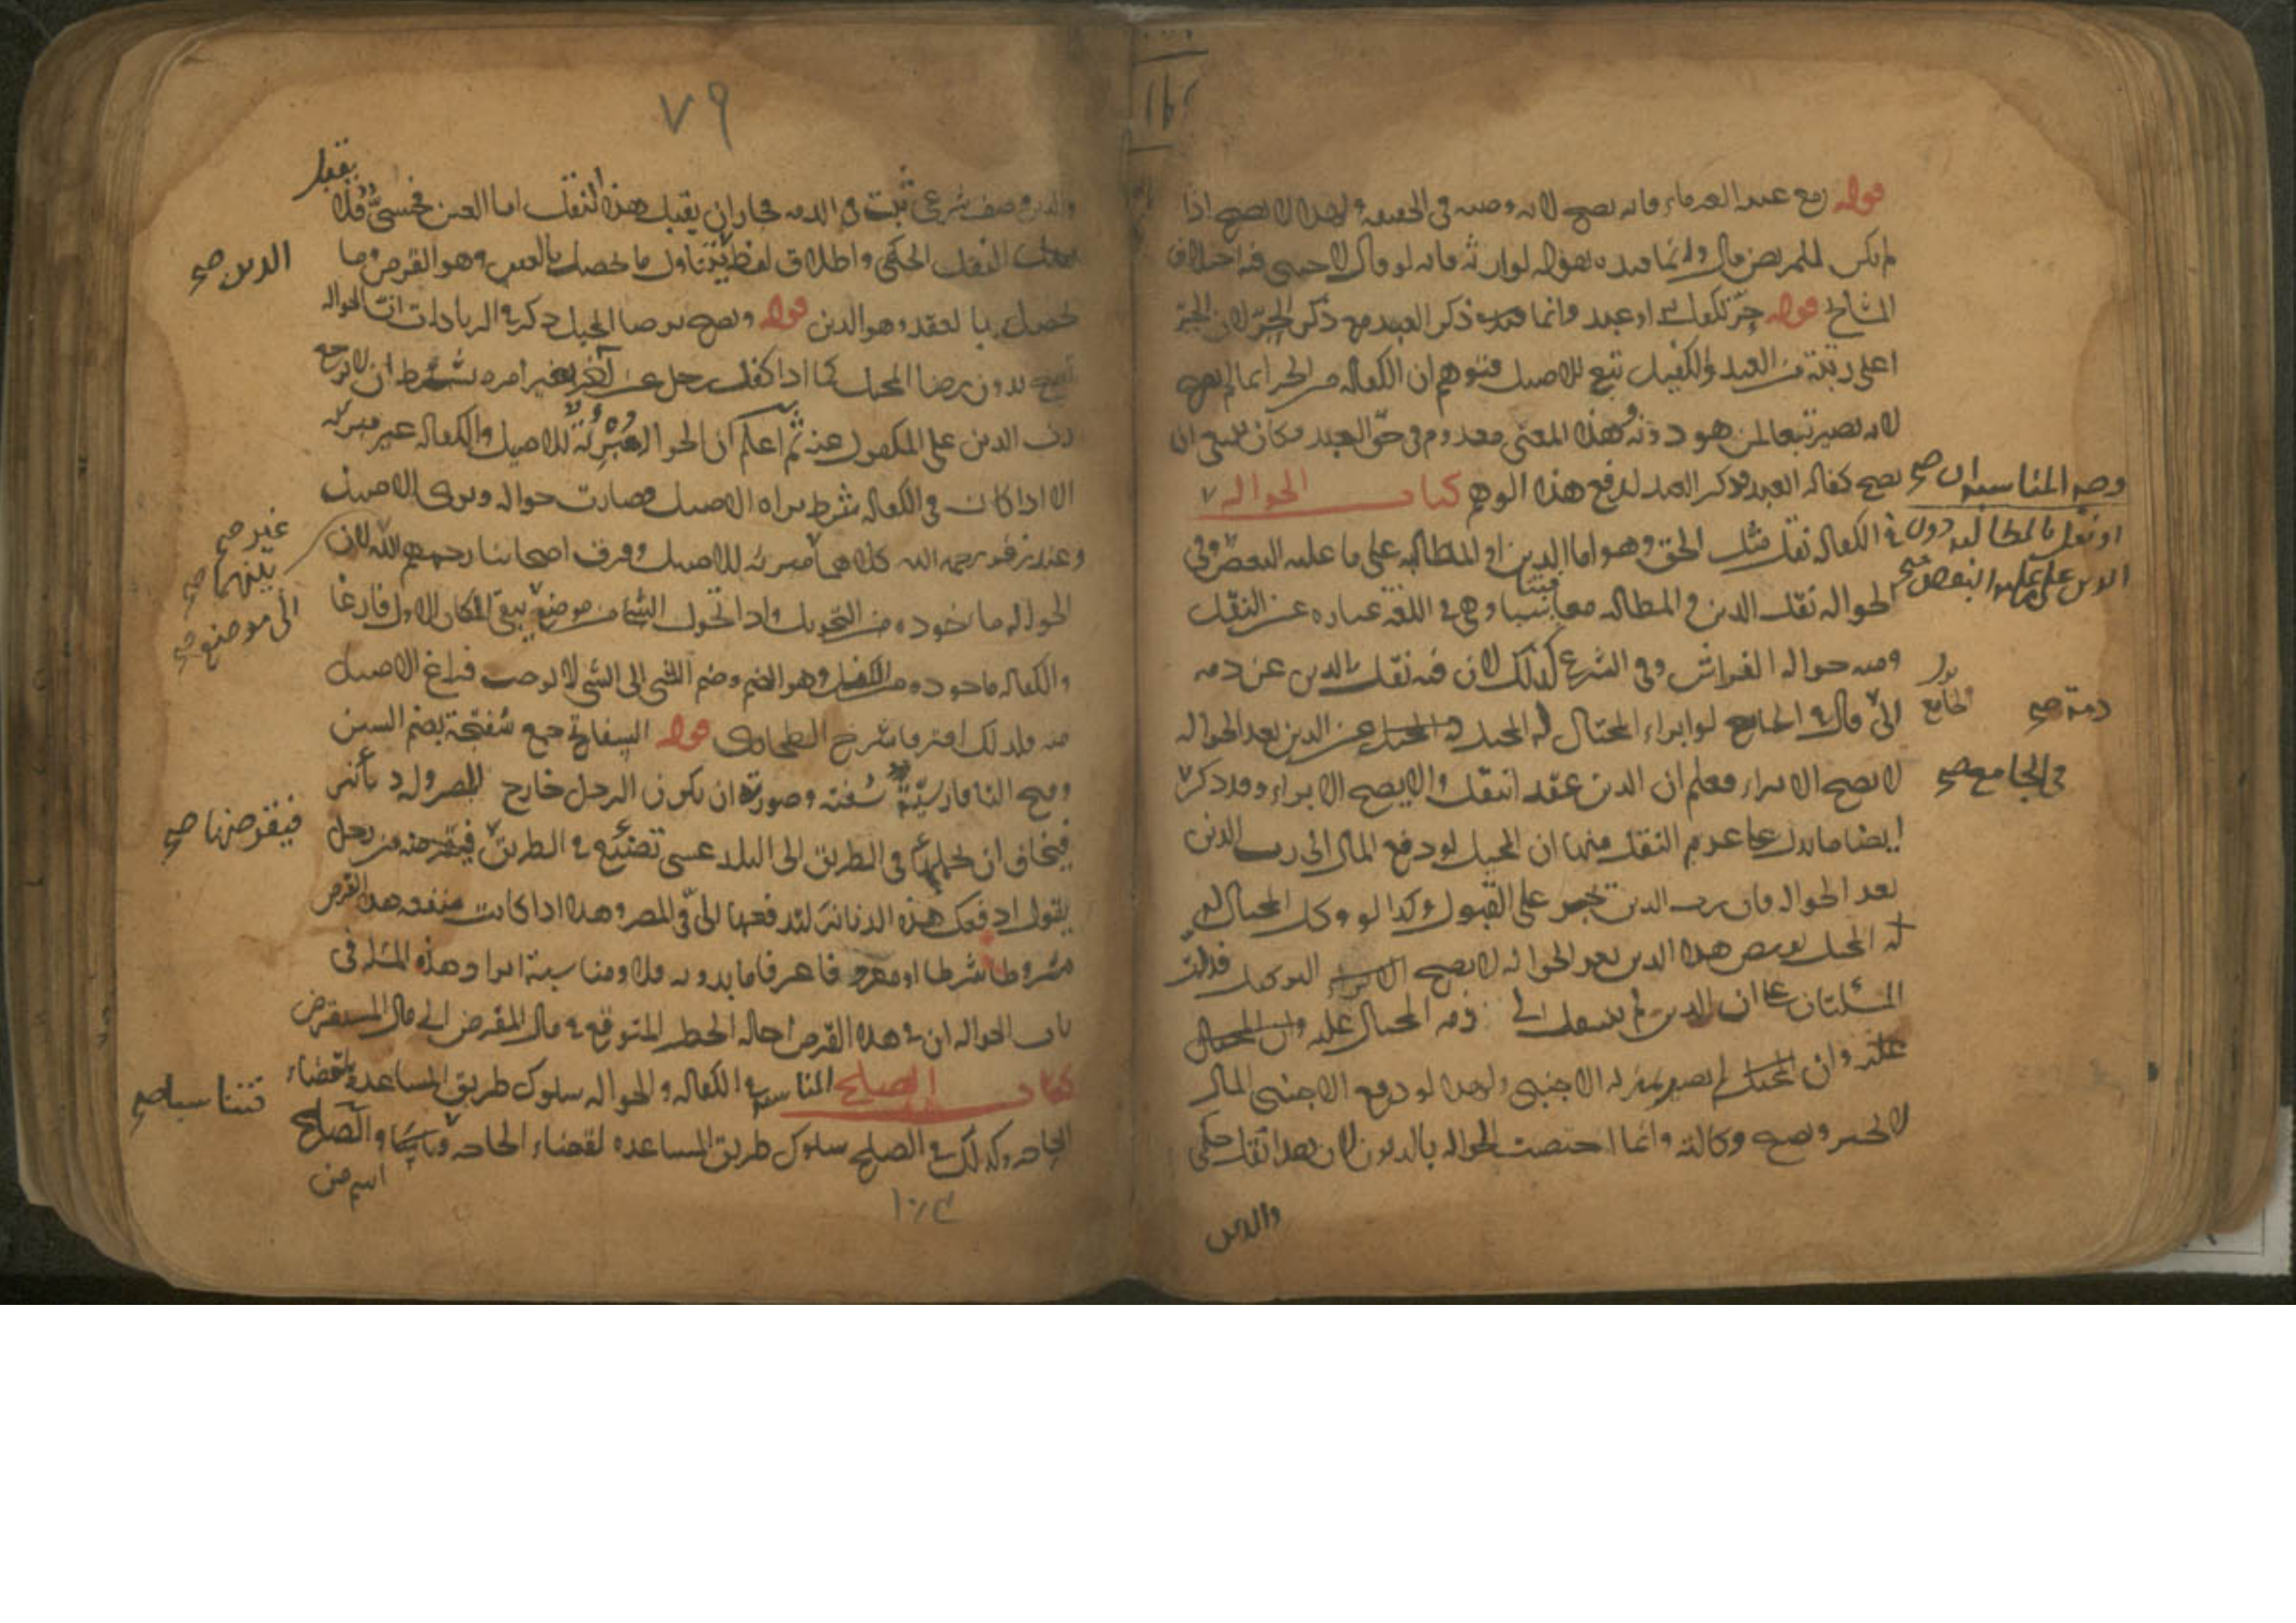 قوله مع عند الغرماء فانه يصح لانه وصية في الحقيقة ولهذا لا يصح اذا
لم يكن للمريض مال وانما قيد بقوله لوارثه فانه لو قال لاجنبي فيه اختلاف
المشايخ قوله حر تكفل او عبد وانما ذكر العبد مع ذكر الحر لان الحر
اعلى رتبة من العبد والكفيل تبع للاصيل فتوهم ان الكفالة من الحر انما لم يصح
لانه يصير تبعا لمن هو دونه وهذا المعنى معدوم في حق العبد فكان ينبغي ان
يصح كفالة العبد فذكر العبد لدفع هذا الوهم كتاب الحوالة
وجه المناسبة ان صح
في الكفالة نقل مثل الحق وهو اما الدين او المطالبة على ما عليه البعض وفي
او نقل المطالبة دون
الدين على ما عليه البعض صح
الحوالة نقل الدين والمطالبة معا وهي في اللغة عبارة عن النقل
ومنه حوالة الغراس وفي الشرع كذلك لان فيه نقل الدين عن ذمة
ذمة صح
الى قال في الجامع لو ابراء المحتال له المحيل عن الدين بعد الحوالة
في الجامع صح
لا يصح الابراء فعلم ان الدين عقد انتقل والا يصح الابراء وقد ذكر
ايضا ما يدل على عدم النقل منها ان المحيل لو دفع المال الى رب الدين
بعد الحوالة فان رب الدين تجبر على القبول وكذا لو وكل المحتال
له المحيل بقبض هذا الدين بعد الحوالة لا يصح التوكيل فدلت
المسئلتان على ان الدين لم ينتقل الى ذمة المحتال عليه
عليه وان المحيل لم يصر بمنزلة الاجنبي ولهذا لو دفع الاجنبي المال
لا تجبر ويصح وكالته وانما اختصت الحوالة بالديون لان هذا نقل حكمي
والدين
٧٩
والدين وصف شرعي ثبت في الذمة فجاز ان يقبل هذا النقل اما العين فحسي فلا
يقبل
يقبل النقل الحكمي واطلاق لفظ يتناول ما حصل بالعين وهو القرض وما
الدين صح
تحصل بالعقد وهو الدين قوله ويصح برضا المحيل ذكر في الزيادات ان الحوالة
تصح بدون رضا المحيل كما اذا كفل رجل عن آخر بغير امره بشرط ان لا يرجع
رب الدين على المكفول عنه ثم اعلم ان الحوالة مبرئة للاصيل والكفالة غير مبرئة
الا اذا كان في الكفالة شرط براءة الاصيل فصارت حوالة وبرئ الاصيل
وعند زفر رحمه الله كلاهما مبرئة للاصيل وفرق اصحابنا رحمهم الله لان
غير صح
بينهما صح
الحوالة ماخوذة من التحويل واذا تحول الشئ من موضع يبقى المكان الاول فارغا
الى موضع صح
والكفالة ماخوذة من الكفل وهو الضم وضم الشئ الى الشئ لا يوجب فراغ الاصيل
منه فلذلك افترقا شرح الطحاوي قوله السفاتج جمع سفتجة بضم السين
وفتح التا فارسية سفته وصورته ان يكون الرجل خارج المصر وله دنانير
فيخاف ان يحملها في الطريق الى البلد عسى تضيع في الطريق فيقرضه من رجل
فيقرضها صح
يقول ادفعك هذه الدنانير لتدفعها الي في المصر وهذا اذا كانت منفعة هذا القرض
مشروطا شرطا او عرفا فاما بدونه فلا ومناسبة ايراد هذه المسئلة في
باب الحوالة ان في هذا القرض احالة الخطر المتوقع في مال المقرض الى مال المستقرض
كتاب الصلح المناسبة في الكفالة والحوالة سلوك طريق المساعدة لقضاء
الحاجة وكذلك في الصلح سلوك طريق المساعدة لقضاء الحاجة والصلح
فتناسبا صح
اسم من